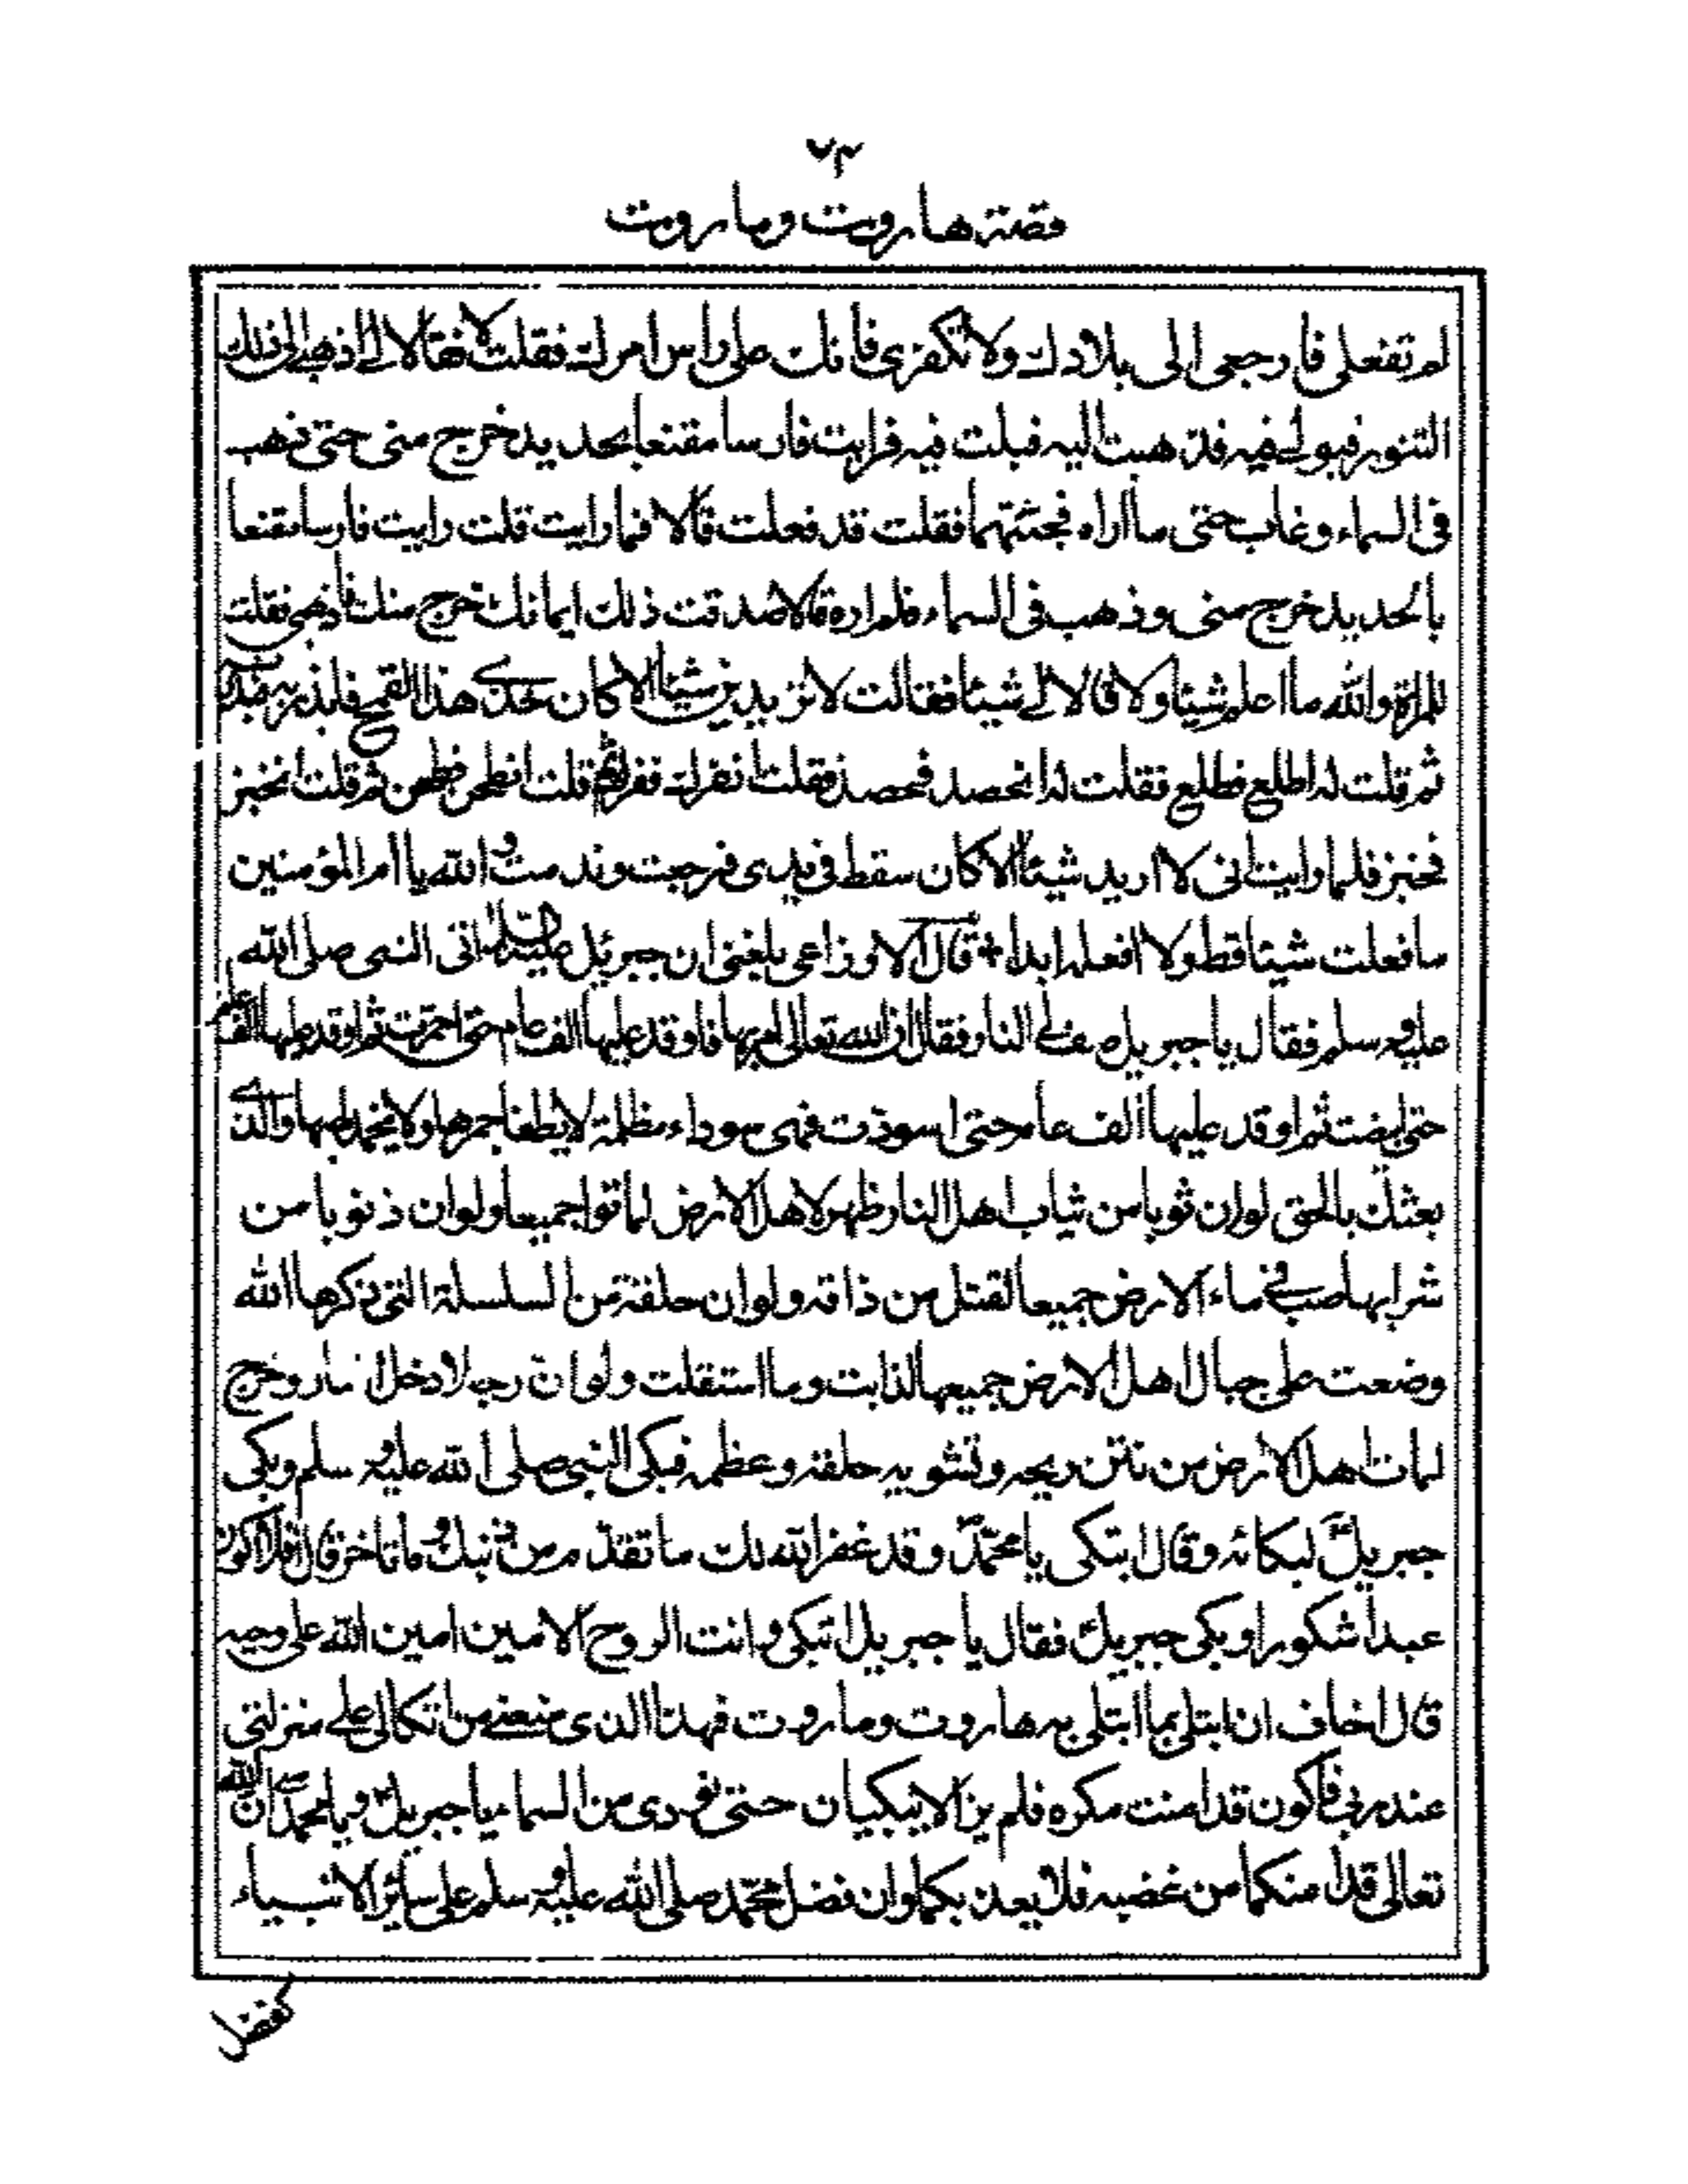 ٧٣
قصة هاروت وماروت
لم تفعلى فارجعى الى بلادك ولا تكفرى فانك على راس امرك فقلت لا فقالا لے اذهبى الى ذلك
التنور فبولے فيه فذهبت اليه فبلت فيه فرايت فارسا مقنعا بحديد خرج منى حتى ذهب
فى السماء وغاب حتى ما اراه فجئتهما فقلت قد فعلت قالا فما رايت قلت رايت فارسا مقنعا
بالحديد خرج منى وذهب فى السماء فلم اره قالا صدقت ذلك ايمانك خرج منك فاذهبى فقلت
للمراة والله ما اعلم شيئا ولا قالا لے شيئا فقالت لا تزيدين شيئا الا كان خذى هذا القمح فابذريه
ثم قلت له اطلع فطلع فقلت له انحصد فحصد فقلت انفرك ففرك ثم قلت انطحن فطحن ثم قلت انخبز
فخبز فلما رايت انى لا اريد شيئا الا كان سقط فى يدى فرجعت وندمت والله يا ام المؤمنين
ما فعلت شيئا قط ولا افعله ابدا * قال الاوزاعى بلغنى ان جبرئيل عليه السلام اتى النبى صلى الله
عليه وسلم فقال يا جبريل صف لے النار فقال ان الله تعالى امر بها فاوقد عليها الف عام حتى احمرت ثم اوقد عليها الف عام
حتى ابيضت ثم اوقد عليها الف عام حتى اسودت فهى سوداء مظلمة لا يطفا جمرها ولا يخمد لهبها والذى
بعثك بالحق لو ان ثوبا من ثياب اهل النار ظهر لاهل الارض لماتوا جميعا ولو ان ذنوبا من
شرابها صب فے ماء الارض جميعا لقتل من ذاقه ولو ان حلقة من السلسلة التى ذكرها الله
وضعت على جبال اهل الارض جميعها لذابت وما استقلت ولو ان رجلا دخل النار وخرج
لمات اهل الارض من نتن ريحه وتشويه خلقه وعظمه فبكى النبى صلى الله عليه وسلم وبكى
جبريل لبكائه وقال اتبكى يا محمد وقد غفر الله لك ما تقدم من ذنبك وما تاخر قال افلا اكون
عبدا شكورا وبكى جبريل فقال يا جبريل اتبكى وانت الروح الامين امين الله على وحيه
قال اخاف ان ابتلى بما ابتلى به هاروت وماروت فهذا الذى منعنے من اتكالى علے منزلتى
عند ربى فاكون قد امنت مكره فلم يزالا يبكيان حتى نودى من السماء يا جبريل ويا محمد ان الله
تعالى قد امنكما من غضبه فلا يعذبكما وان فضل محمد صلى الله عليه وسلم على سائر الانبياء
كفضل